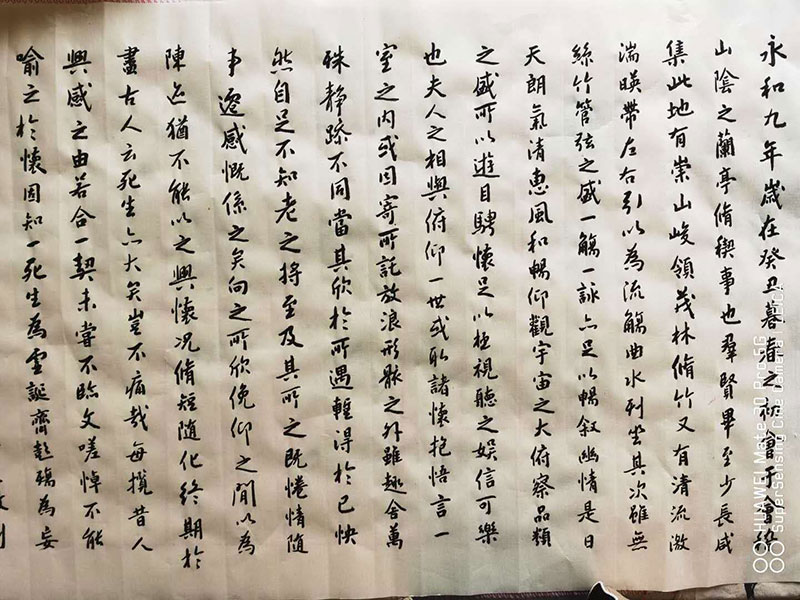 永和九年歲在癸丑暮春之初會于會稽
山陰之蘭亭脩稧事也羣賢畢至少長咸
集此地有崇山峻領茂林脩竹又有清流激
湍暎帶左右引以為流觴曲水列坐其次雖無
絲竹管弦之盛一觴一詠亦足以暢敘幽情是日
天朗氣清惠風和暢仰觀宇宙之大俯察品類
之盛所以遊目騁懷足以極視聽之娛信可樂
也夫人之相與俯仰一世或取諸懷抱悟言一
室之内或因寄所託放浪形骸之外雖趣舍萬
殊靜躁不同當其欣於所遇暫得於己快
然自足不知老之將至及其所之既惓情隨
事遷感慨係之矣向之所欣俛仰之間以為
陳迹猶不能以之興懷况脩短隨化終期於
盡古人云死生亦大矣豈不痛哉每攬昔人
興感之由若合一契未嘗不臨文嗟悼不能
喻之於懷固知一死生為虛誕齊彭殤為妄
HUAWEI Mate 30 Pro 5G
SuperSensing Cine Camera